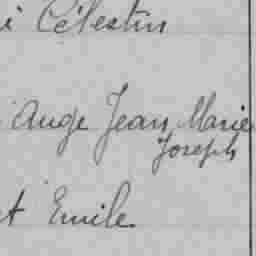 i Célestin
Ange Jean Marie
Joseph
t Emile